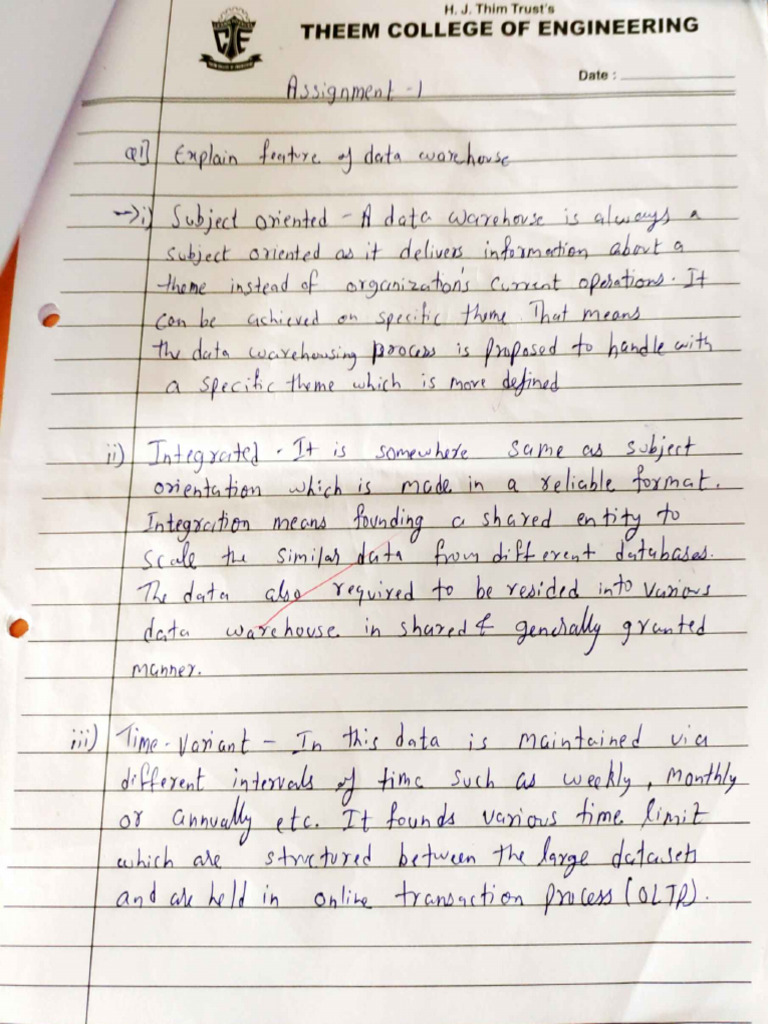 H. J. Thim Trust's
THEEM COLLEGE OF ENGINEERING
Date :
Assignment - 1
Q1] Explain feature of data warehouse
→i) Subject oriented - A data warehouse is always a
subject oriented as it delivers information about a
theme instead of organization's current operations. It
can be achieved on specific theme. That means
the data warehousing process is proposed to handle with
a specific theme which is more defined
ii) Integrated - It is somewhere same as subject
orientation which is made in a reliable format.
Integration means founding a shared entity to
scale the similar data from different databases.
The data also required to be resided into various
data warehouse in shared & generally granted
manner.
iii) Time-Variant - In this data is maintained via
different intervals of time such as weekly, monthly
or annually etc. It founds various time limit
which are structured between the large datasets
and are held in online transaction process (OLTP).